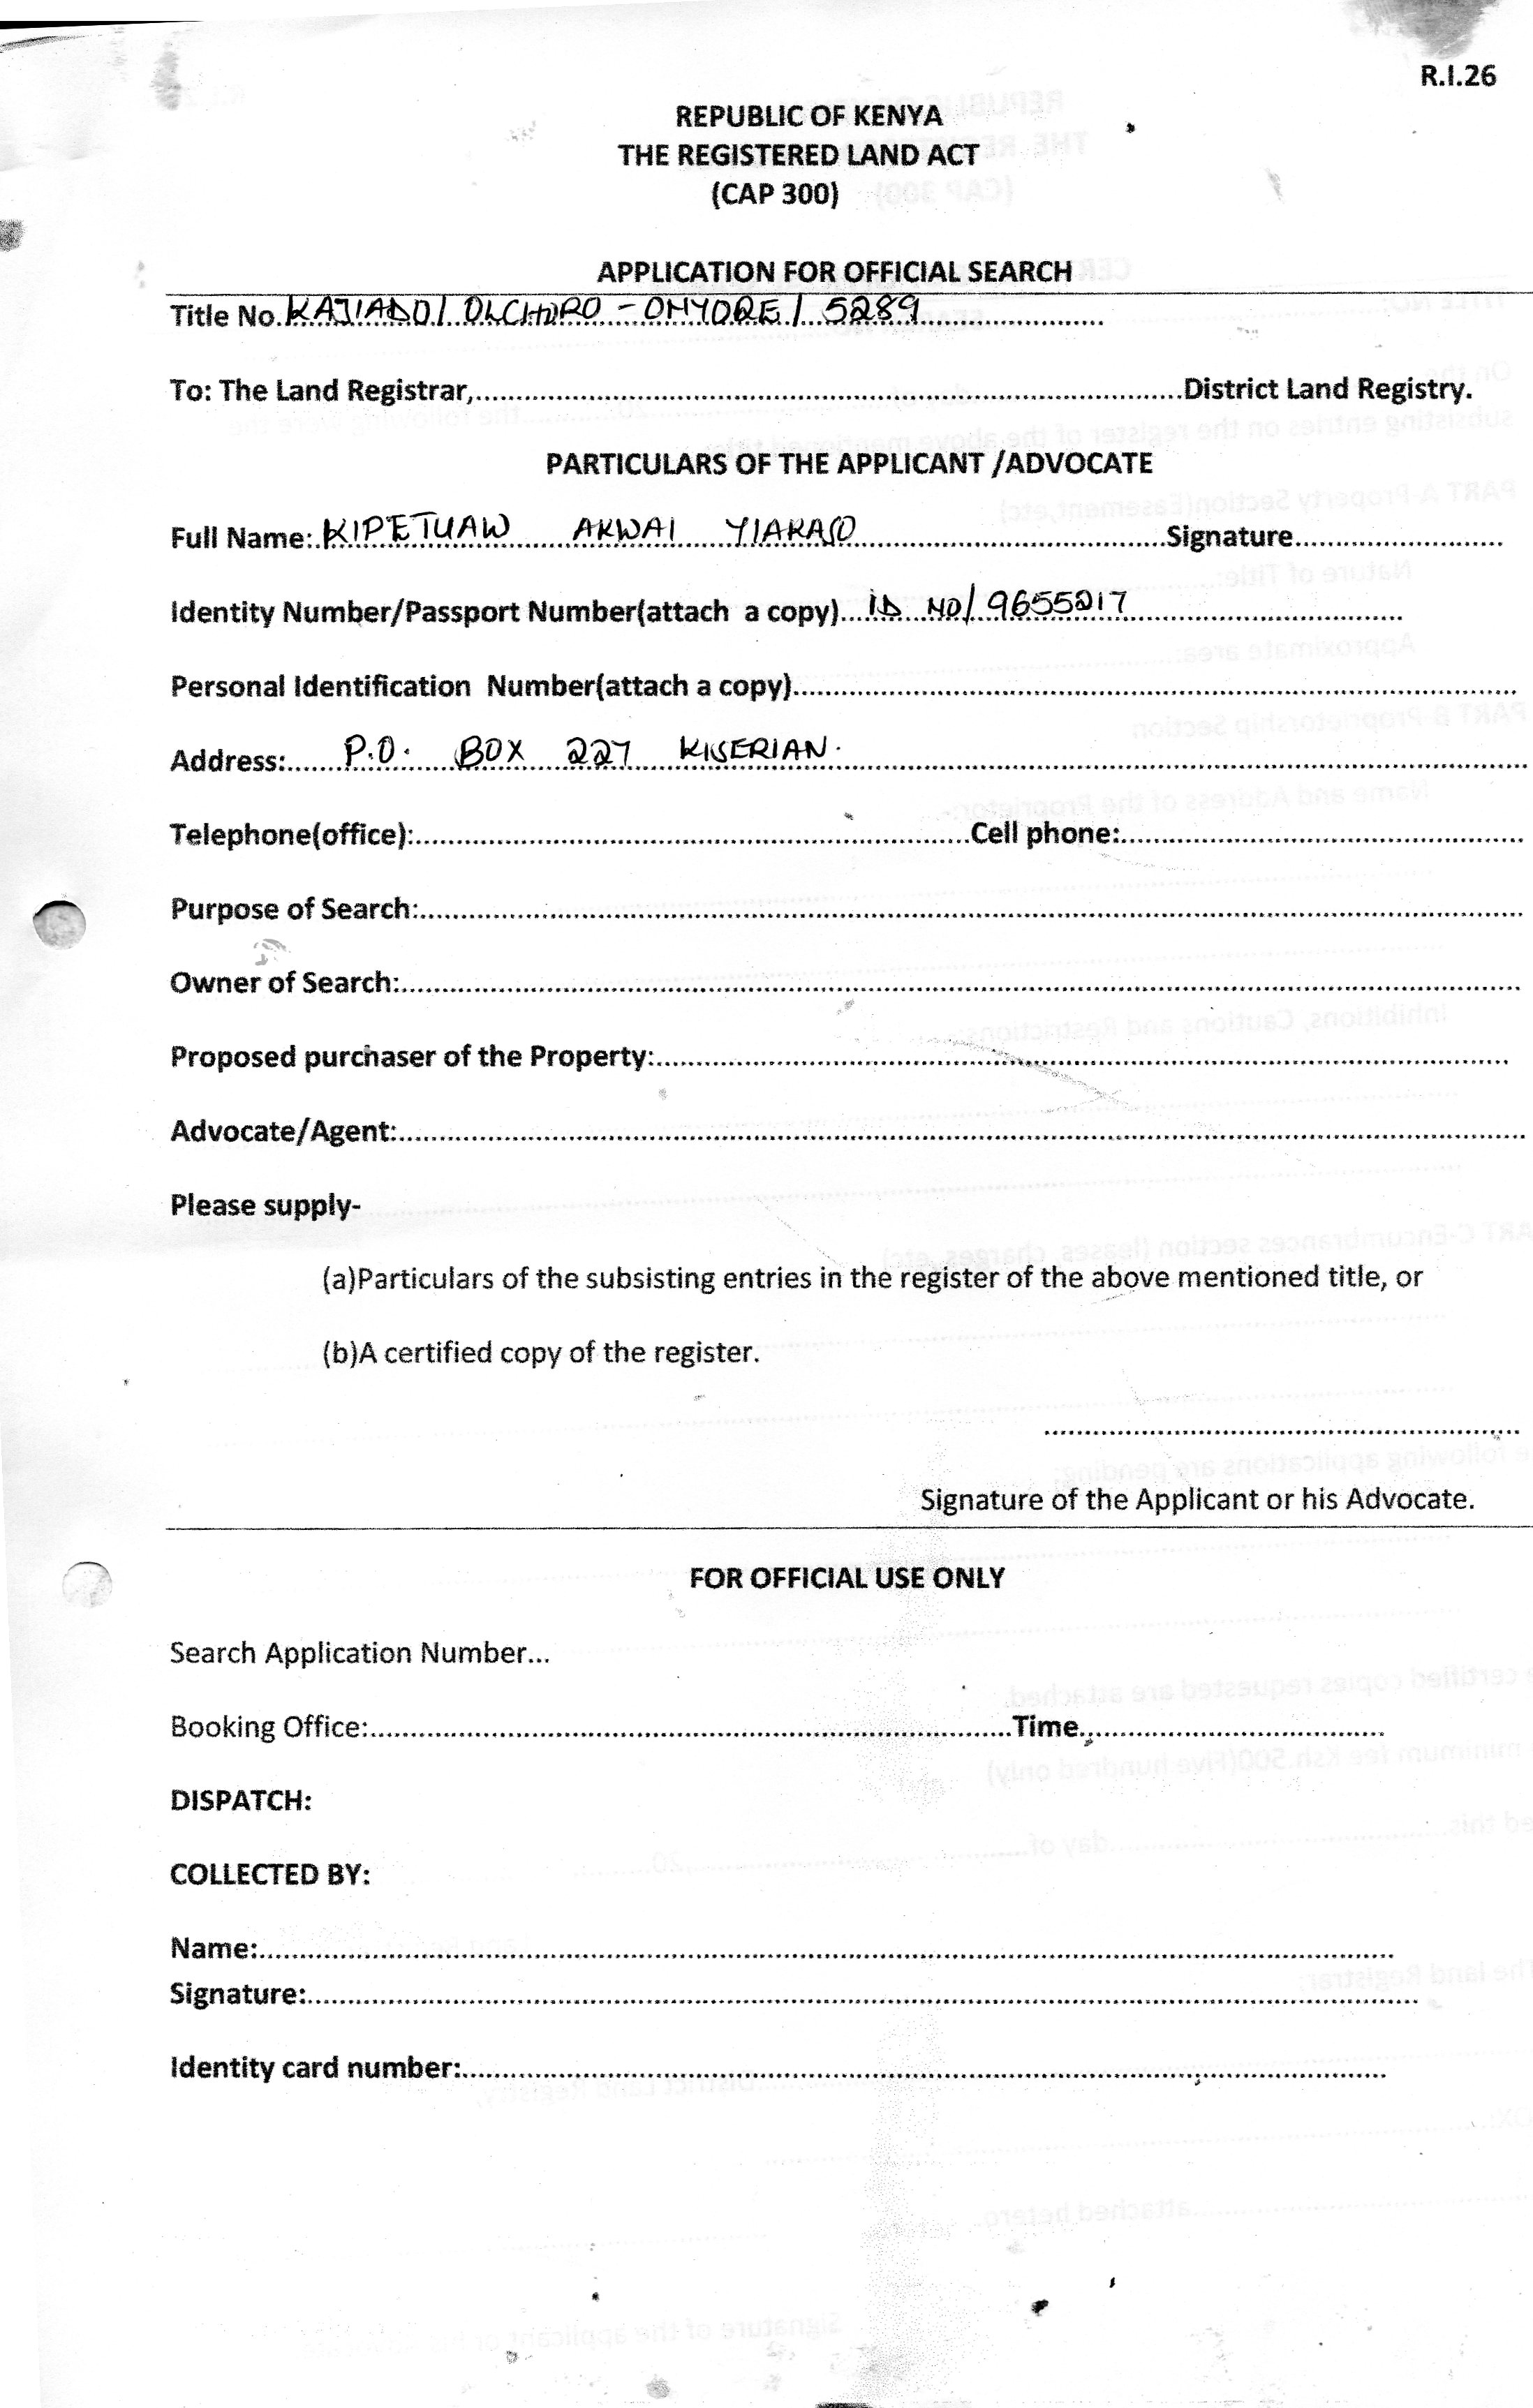 R.I.26
REPUBLIC OF KENYA
THE REGISTERED LAND ACT
(CAP 300)
APPLICATION FOR OFFICIAL SEARCH
Title No. KAJIADO / OLCHORO - ONYORE / 5289
To: The Land Registrar,..........District Land Registry.
PARTICULARS OF THE APPLICANT /ADVOCATE
Full Name: KIPETUAW AKWAI YIARASO Signature..........
Identity Number/Passport Number(attach a copy) ID NO/ 9655217
Personal Identification Number(attach a copy)..........
Address: P.O. BOX 227 KISERIAN.
Telephone(office):..........Cell phone:..........
Purpose of Search:..........
Owner of Search:..........
Proposed purchaser of the Property:..........
Advocate/Agent:..........
Please supply-
(a)Particulars of the subsisting entries in the register of the above mentioned title, or
(b)A certified copy of the register.
Signature of the Applicant or his Advocate.
FOR OFFICIAL USE ONLY
Search Application Number...
Booking Office:..........Time..........
DISPATCH:
COLLECTED BY:
Name:..........
Signature:..........
Identity card number:..........